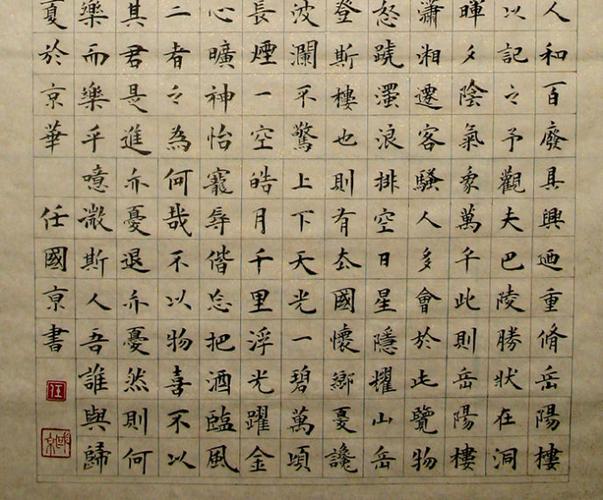 人和百廢具興迺重脩岳陽樓
以記之予觀夫巴陵勝狀在洞
暉夕陰氣象萬千此則岳陽樓
瀟湘遷客騷人多會於此覽物
怒號濁浪排空日星隱耀山岳
登斯樓也則有去國懷鄉憂讒
波瀾不驚上下天光一碧萬頃
長煙一空皓月千里浮光躍金
心曠神怡寵辱偕忘把酒臨風
二者之為何哉不以物喜不以
其君是進亦憂退亦憂然則何
樂而樂乎噫微斯人吾誰與歸
夏於京華 任國京書
任